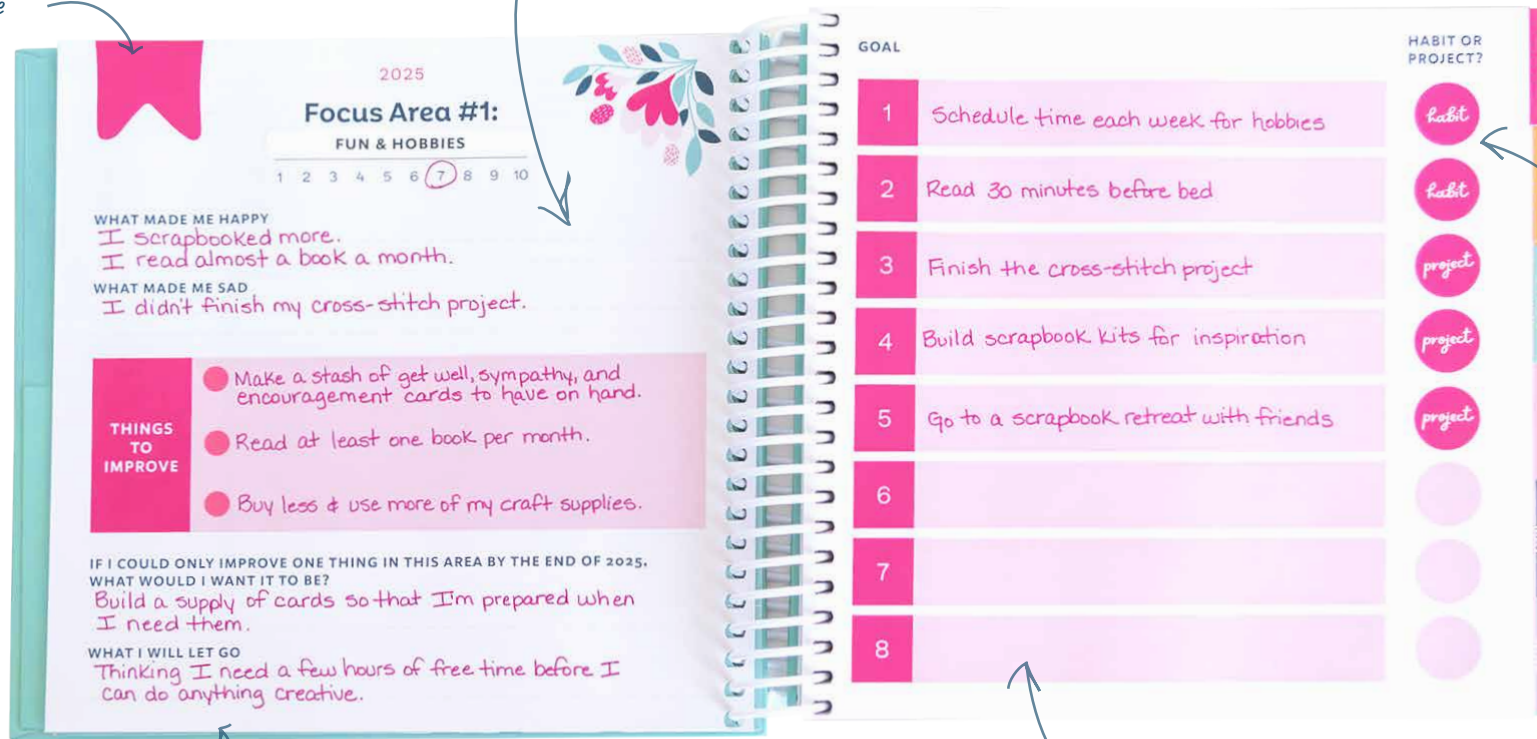 e
2025
Focus Area #1:
FUN & HOBBIES
1 2 3 4 5 6 7 8 9 10
WHAT MADE ME HAPPY
I scrapbooked more.
I read almost a book a month.
WHAT MADE ME SAD
I didn't finish my cross-stitch project.
THINGS
TO
IMPROVE
Make a stash of get well, sympathy, and
encouragement cards to have on hand.
Read at least one book per month.
Buy less & use more of my craft supplies.
IF I COULD ONLY IMPROVE ONE THING IN THIS AREA BY THE END OF 2025,
WHAT WOULD I WANT IT TO BE?
Build a supply of cards so that I'm prepared when
I need them.
WHAT I WILL LET GO
Thinking I need a few hours of free time before I
can do anything creative.
GOAL
HABIT OR
PROJECT?
1 Schedule time each week for hobbies habit
2 Read 30 minutes before bed habit
3 Finish the cross-stitch project project
4 Build scrapbook kits for inspiration project
5 Go to a scrapbook retreat with friends project
6
7
8